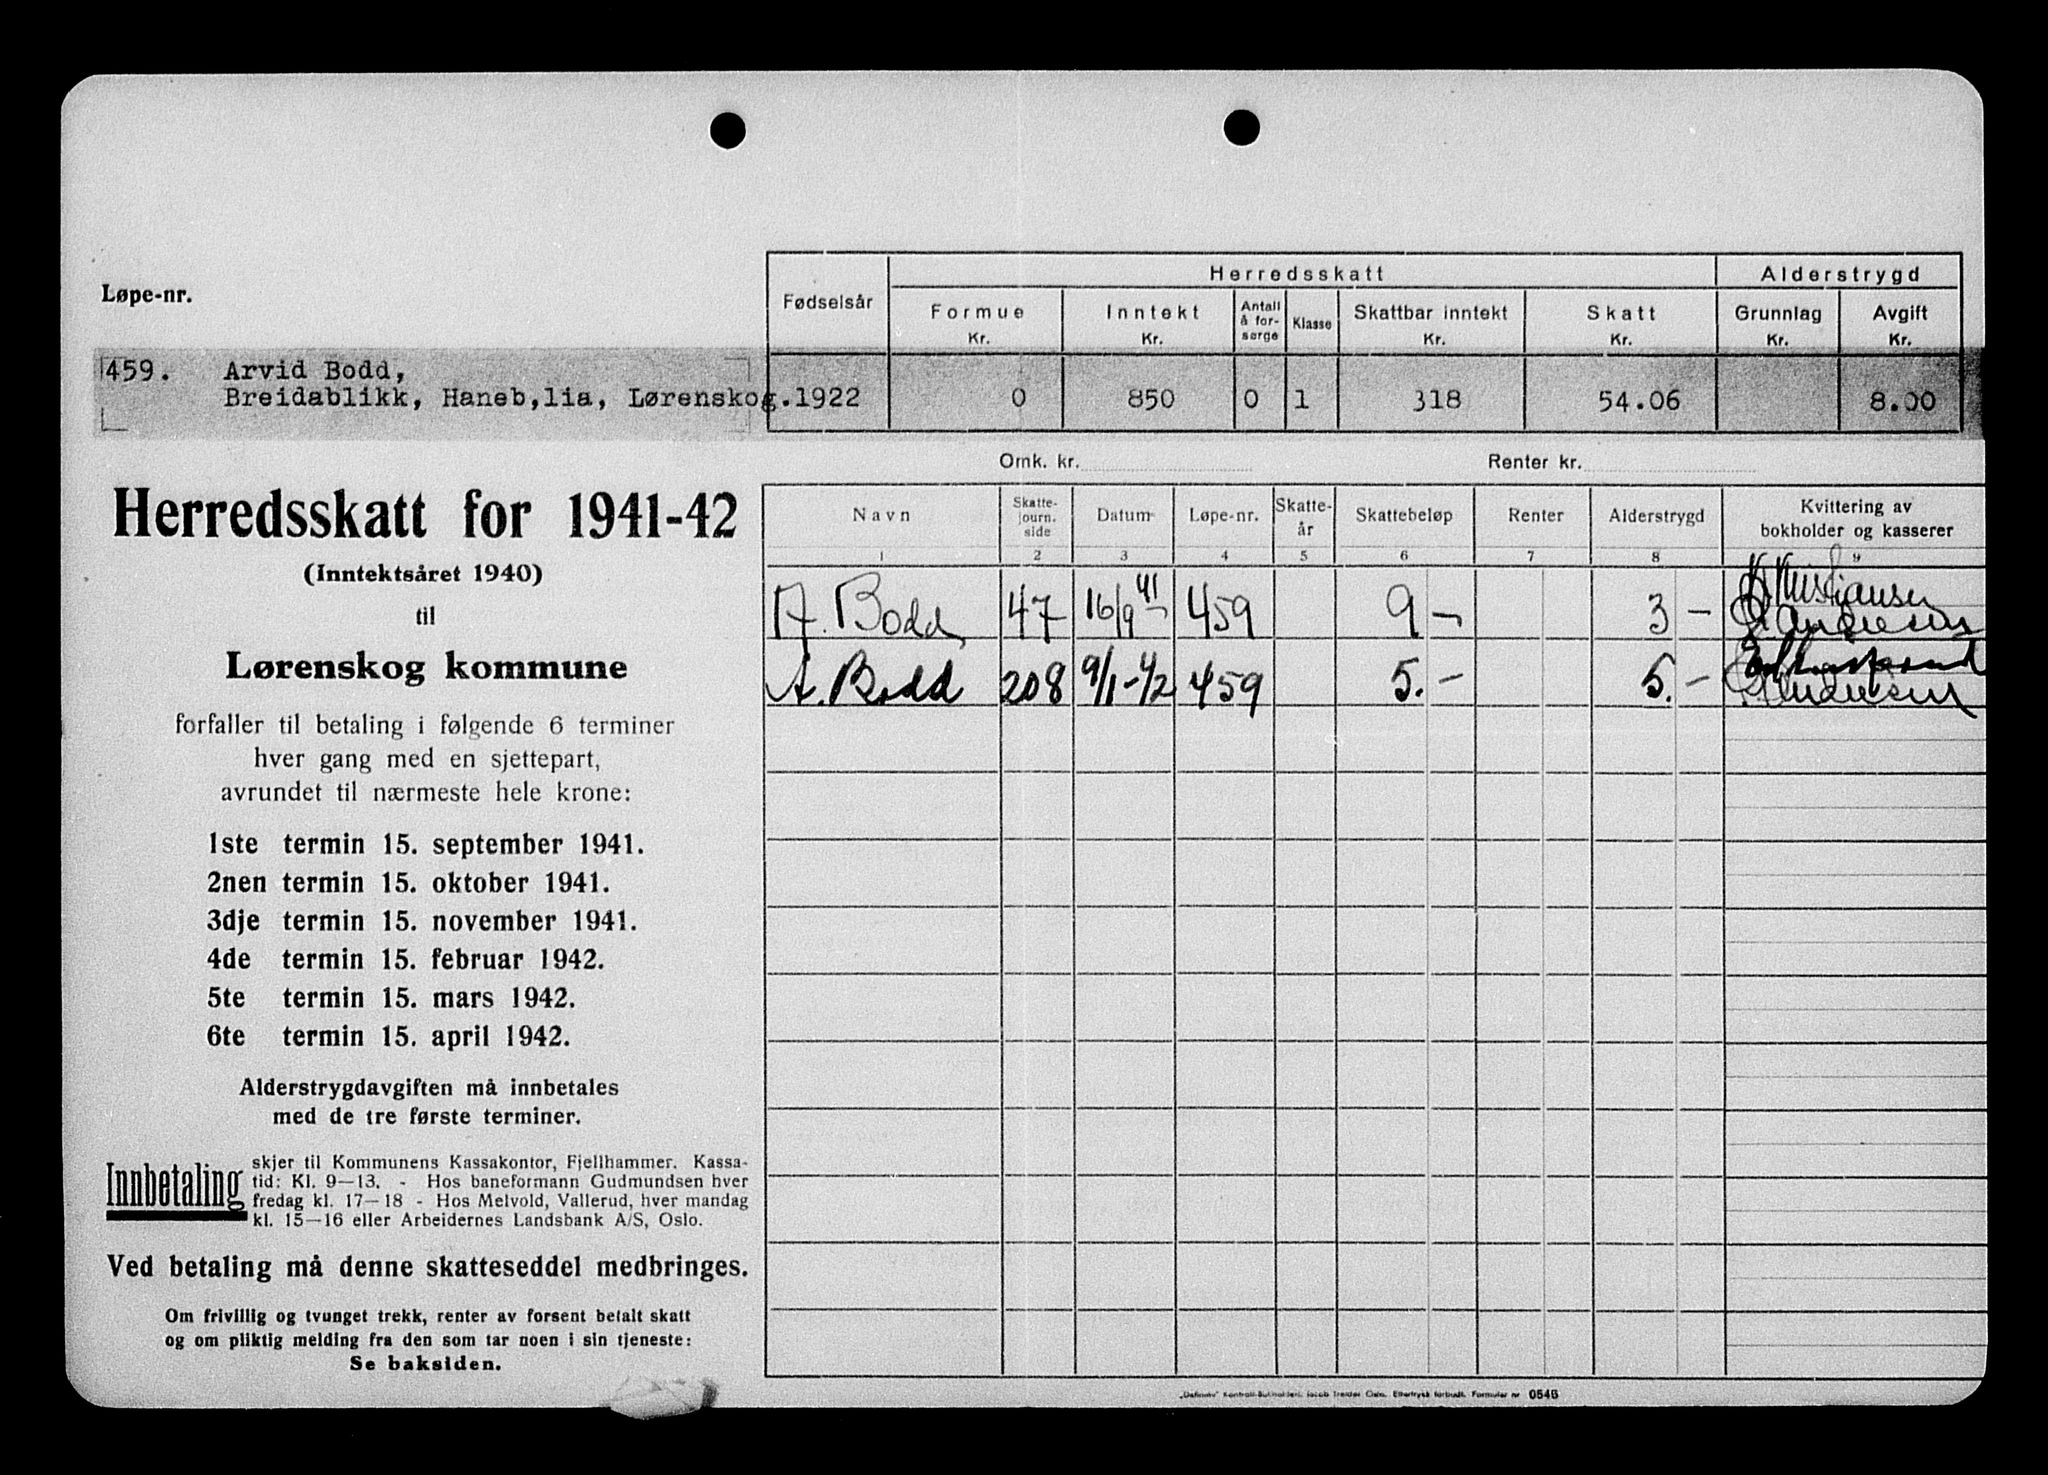 Løpe-nr.
Fødselsår
Herredsskatt
Alderstrygd
Formue Kr.
Inntekt Kr.
Antall å for-sørge
Klasse
Skattbar inntekt Kr.
Skatt Kr.
Grunnlag Kr.
Avgift Kr.
459. Arvid Bodd,
Breidablikk, Haneb,lia, Lørenskog. 1922 0 850 0 1 318 54.06 8.00
Omk. kr. Renter kr.
Herredsskatt for 1941-42
(Inntektsåret 1940)
til
Lørenskog kommune
forfaller til betaling i følgende 6 terminer
hver gang med en sjettepart,
avrundet til nærmeste hele krone:
1ste termin 15. september 1941.
2nen termin 15. oktober 1941.
3dje termin 15. november 1941.
4de termin 15. februar 1942.
5te termin 15. mars 1942.
6te termin 15. april 1942.
Alderstrygdavgiften må innbetales
med de tre første terminer.
Innbetaling skjer til Kommunens Kassakontor, Fjellhammer. Kassa-
tid: Kl. 9—13. - Hos baneformann Gudmundsen hver
fredag kl. 17—18 - Hos Melvold, Vallerud, hver mandag
kl. 15—16 eller Arbeidernes Landsbank A/S, Oslo.
Ved betaling må denne skatteseddel medbringes.
Om frivillig og tvunget trekk, renter av forsent betalt skatt
og om pliktig melding fra den som tar noen i sin tjeneste:
Se baksiden.
Navn
Skatte-journ. side
Datum
Løpe-nr.
Skatte-år
Skattebeløp
Renter
Alderstrygd
Kvittering av
bokholder og kasserer
1 2 3 4 5 6 7 8 9
A. Bodd 47 16/9 41 459 9 - 3 - Kristiansen
Andresen
A. Bodd 208 9/1-42 459 5. - 5. -
Andresen
"Definitiv" Kontroll-Bokholderi, Jacob Trelder, Oslo. Ettertrykk forbudt. Formular nr 0546